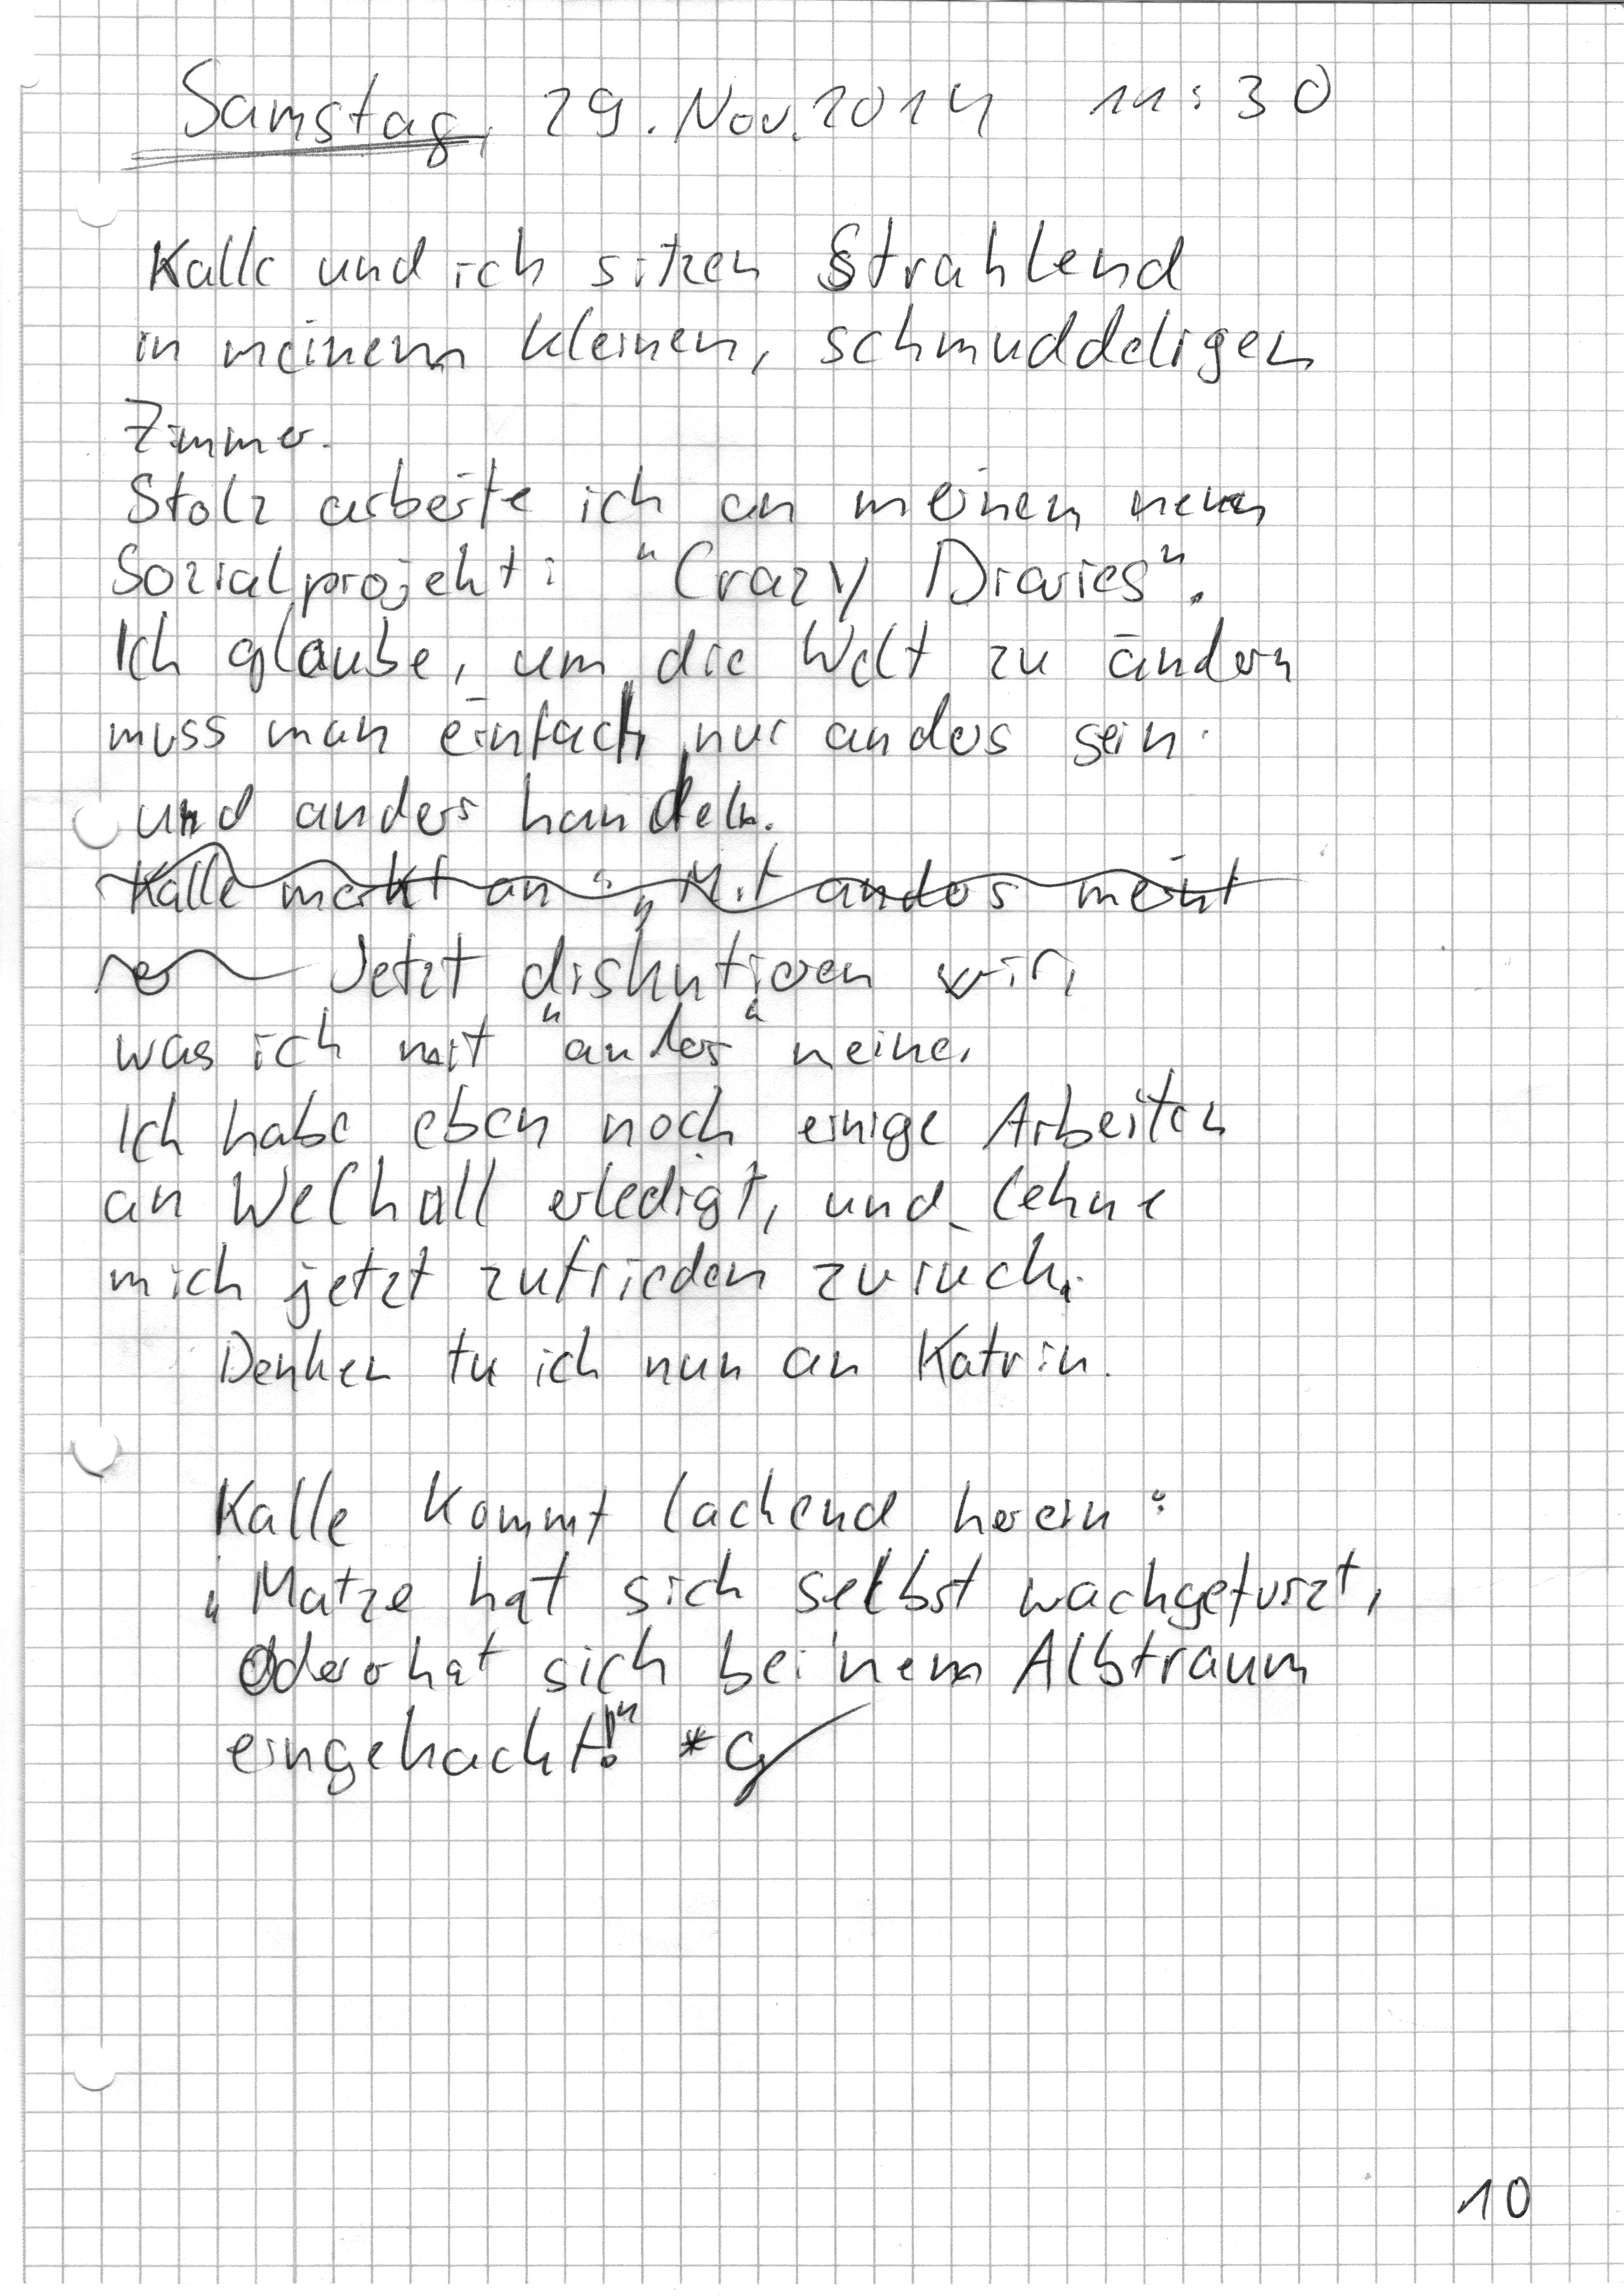 Samstag, 29. Nov. 2014 11:30
Kalle und ich sitzen Strahlend
in meinem kleinen, schmuddeligen
Zimmer.
Stolz arbeite ich an meinem neuen
Sozialprojekt: "Crazy Diaries".
Ich glaube, um die Welt zu ändern
muss man einfach nur anders sein
und anders handeln.
Kalle merkt an: „Mit anders meint
er Jetzt diskutieren wir,
was ich mit "anders" meine.
Ich habe eben noch einige Arbeiten
an Welhall erledigt, und lehne
mich jetzt zufrieden zurück.
Denken tu ich nun an Katrin.
Kalle kommt lachend herein:
„Matze hat sich selbst wachgefurzt,
Oder er hat sich bei 'nem Albtraum
eingekackt!" *g
10